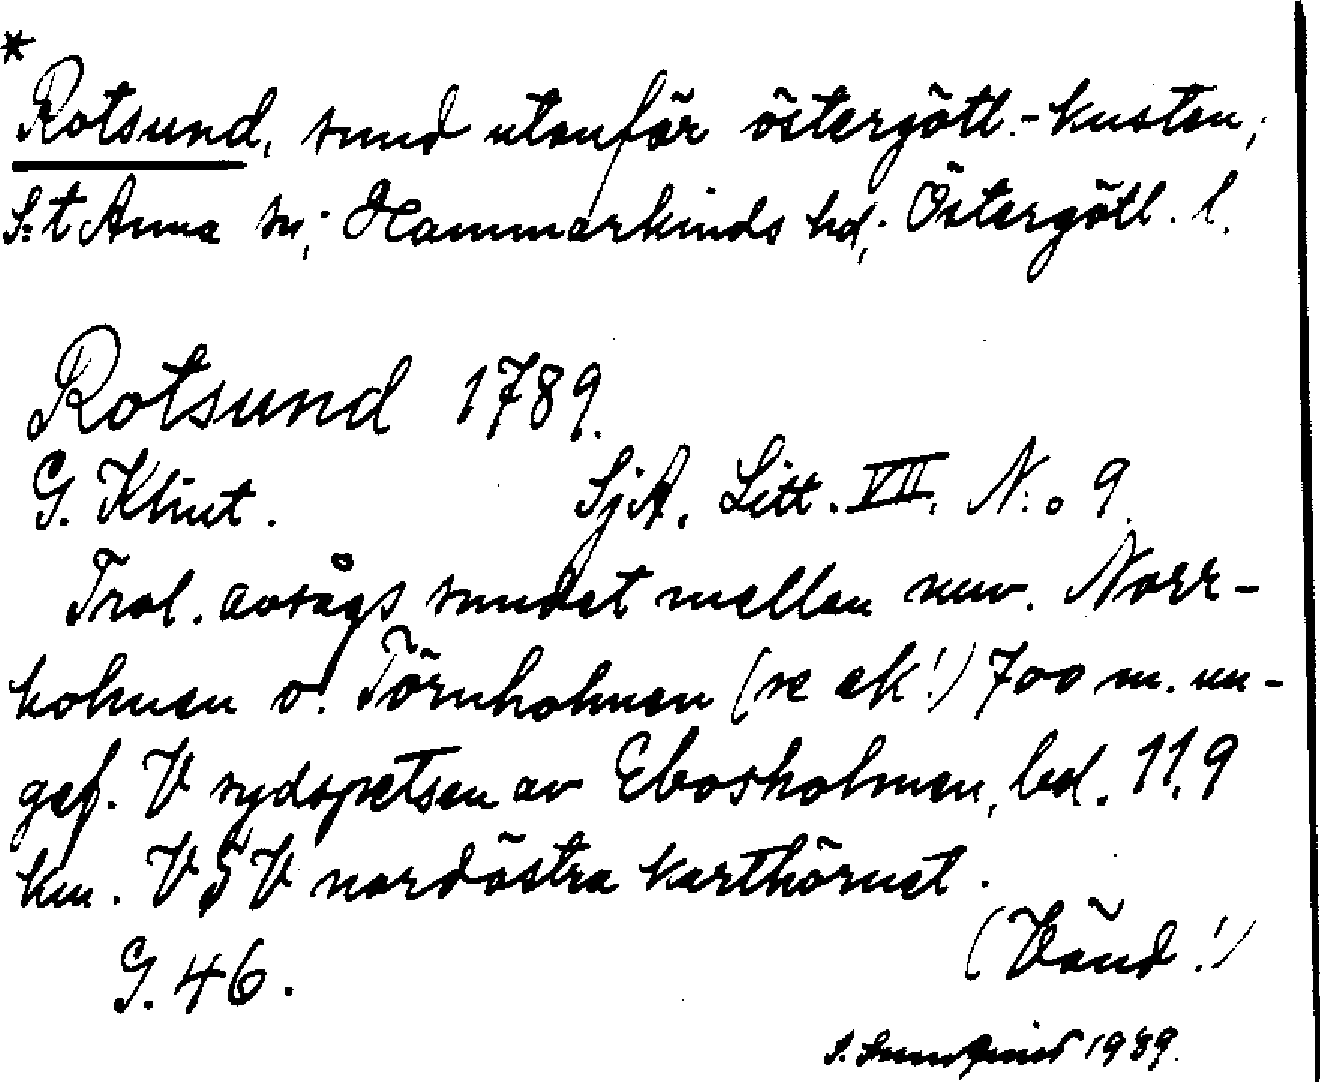 *
Rotsund, sund utanför östergötl.-kusten,
S:t Anna sn, Hammarkinds hd, Östergötl. l.
Rotsund 1789.
G. Klint. SjA. Litt. VII. N:o 9.
Trol. avsågs sundet mellan nuv. Norr-
holmen o. Törnholmen (se ek!) 700 m. un-
gef. V sydspetsen av Ebosholmen, bel. 11,9
km. VSV nordöstra karthörnet.
G. 46. (Vänd!)
1989.